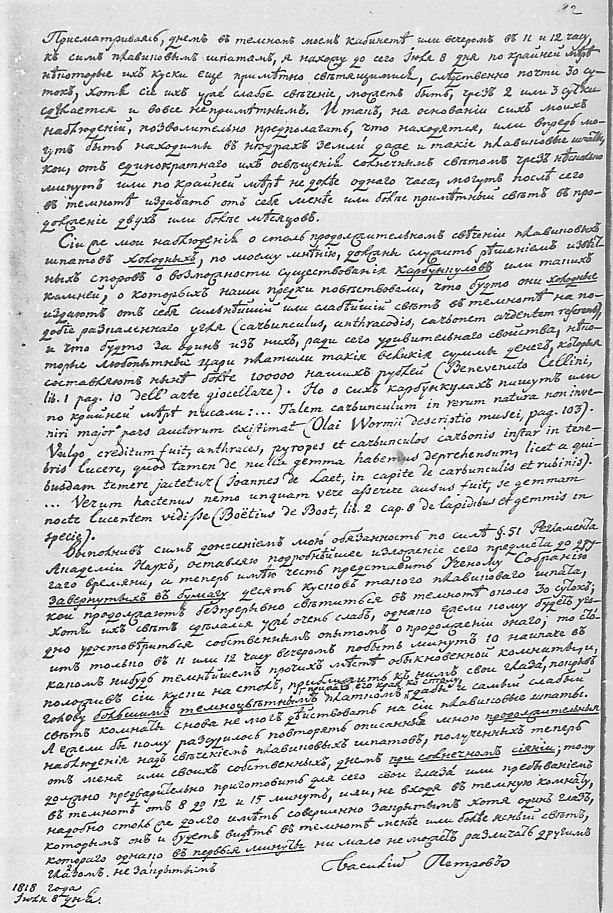 42
Присматриваясь, днемъ въ темномъ моемъ кабинетѣ или вечеромъ въ 11 и 12 часу,
къ симъ плавиковымъ шпатамъ, я нахожу до сего Іюня 8 дня по крайней мѣрѣ
нѣкоторые ихъ куски еще примѣтно свѣтящимися, слѣдственно почти 30 су-
токъ, хотя сіе ихъ уже слабое свѣченіе, можетъ быть, чрезъ 2 или 3 сутки
сдѣлается и вовсе непримѣтнымъ. И такъ, на основаніи сихъ моихъ
наблюденій, позволительно предполагать, что находятся, или впредь мо-
гутъ быть находимы въ нѣдрахъ земли даже и такіе плавиковые шпаты,
кои, отъ единократнаго ихъ освѣщенія солнечнымъ свѣтомъ чрезъ нѣсколько
минутъ или по крайней мѣрѣ не долѣе одного часа, могутъ послѣ сего
въ темнотѣ издавать отъ себя менѣе или болѣе примѣтный свѣтъ въ про-
долженіе двухъ или болѣе мѣсяцовъ.
Сіи же мои наблюденія о столь продолжительномъ свѣченіи плавиковыхъ
шпатовъ холодныхъ, по моему мнѣнію, должны служить рѣшеніемъ извѣст-
ныхъ споровъ о возможности существованія карбункуловъ или такихъ
камней, о которыхъ наши предки повѣствовали, что будто они холодные
издаютъ отъ себя сильнѣйшій или слабѣйшій свѣтъ въ темнотѣ на по-
добіе разкаленнаго угля (carbunculus, anthracodis, carbonem ardentem referens),
и что будто за одинъ изъ нихъ, ради сего удивительнаго свойства, нѣко-
торые любопытные Цари платили такія великія суммы денегъ, которыя
составляютъ нынѣ болѣе 100000 нашихъ рублей (Benevenuto Cellini,
lib. 1 pag. 10 dell' arte giocellare). Но о сихъ карбункулахъ пишутъ или
по крайней мѣрѣ писали: ... Talem carbunculum in rerum natura non inve-
niri major pars auctorum existimat (Olai Wormii descriptio musei, pag. 103).
Vulgo creditum fuit, anthraces, pyropos et carbunculos carbonis instar in tene-
bris lucere, quod tamen de nulla gemma habemus deprehensum, licet a qui-
busdam temere jactetur (Joannes de Laet, in capite de carbunculis et rubinis).
... Verum hactenus nemo unquam vere asserere ausus fuit, se gemmam
nocte lucentem vidisse (Boëtius de Boot, lib. 2 cap. 8 de lapidibus et gemmis in
specie).
Выполнивъ симъ донесеніемъ мою обязанность по силѣ §. 51 Регламента
Академіи Наукъ, оставляю подробнѣйшее изложеніе сего предмета до дру-
гаго времяни, а теперь имѣю честь представить Ученому Собранію
завернутыхъ въ бумагу десять кусковъ такого плавиковаго шпата,
кои продолжаютъ безпрерывно свѣтиться въ темнотѣ около 30 сутокъ;
хотя ихъ свѣтъ сдѣлался уже очень слабъ, однако ежели кому будетъ уго-
дно удостовѣриться собственнымъ опытомъ о продолженіи онаго; то сто-
итъ только въ 11 или 12 часу вечеромъ побыть минутъ 10 наипаче въ
какомъ нибудь темнѣйшемъ прочихъ мѣстѣ обыкновенной комнаты, и,
положивъ сіи куски на столъ, приближить къ нимъ свои глаза, покрывъ
голову большимъ темноцвѣтнымъ платкомъ, дабы и самый слабый
свѣтъ комнаты снова не могъ дѣйствовать на сіи плавиковые шпаты.
А ежели бы кому разсудилось повторять описанныя мною продолжительныя
наблюденія надъ свѣченіемъ плавиковыхъ шпатовъ, полученныхъ теперь
отъ меня или своихъ собственныхъ, днемъ при солнечномъ сіяніи; тому
должно предварительно приготовить для сего свои глаза или пребываніемъ
въ темнотѣ отъ 8 до 12 и 15 минутъ, или, не входя въ темную комнату,
надобно столь же долго имѣть совершенно закрытымъ хотя одинъ глазъ,
которымъ онъ и будетъ видѣть въ темнотѣ менѣе или болѣе ясный свѣтъ,
котораго однако въ первыя минуты ни мало не можетъ различать другимъ
глазомъ не закрытымъ
Василій Петровъ
1818 года
Іюня 8 дня.